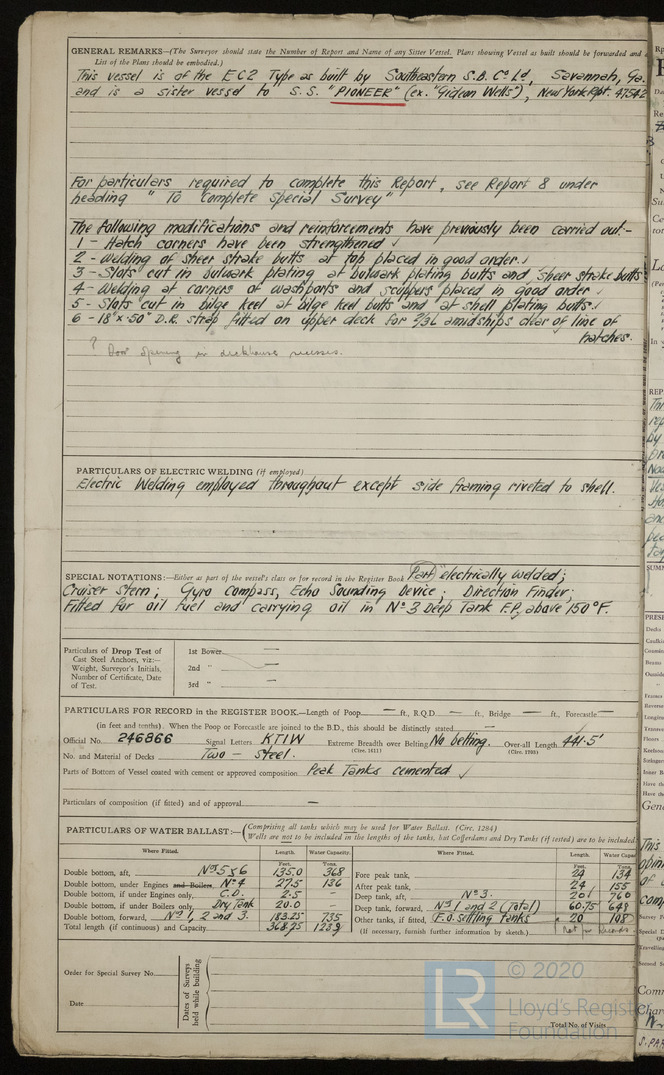 GENERAL REMARKS—(The Surveyor should state the Number of Report and Name of any Sister Vessel. Plans showing Vessel as built should be forwarded and
List of the Plans should be embodied.)
This vessel is of the EC2 Type as built by Southeastern S.B. Co Ld, Savannah, Ga.
and is a sister vessel to S.S. "PIONEER" (ex. "Gideon Wells"), New York Rpt. 47542
For particulars required to complete this Report, see Report 8 under
heading "To Complete Special Survey"
The following modifications and reinforcements have previously been carried out:-
1 - Hatch corners have been strengthened ✓
2 - Welding of sheer strake butts at top placed in good order ✓
3 - Slots cut in bulwark plating at bulwark plating butts and sheer strake butts
4 - Welding at corners of washports and scuppers placed in good order ✓
5 - Slots cut in bilge keel at bilge keel butts and at shell plating butts ✓
6 - 18" x .50" D.R. strap fitted on upper deck for amidships clear of line of
hatches.
? Door opening in deckhouse recesses.
PARTICULARS OF ELECTRIC WELDING (if employed)
Electric Welding employed throughout except side framing riveted to shell.
SPECIAL NOTATIONS:—Either as part of the vessel's class or for record in the Register Book Part electrically welded;
Cruiser Stern; Gyro Compass, Echo Sounding Device; Direction Finder;
Fitted for oil fuel and carrying oil in No 3 Deep Tank F.P. above 150°F.
Particulars of Drop Test of
Cast Steel Anchors, viz:—
Weight, Surveyor's Initials,
Number of Certificate, Date
of Test.
1st Bower —
2nd " —
3rd " —
PARTICULARS FOR RECORD in the REGISTER BOOK.—Length of Poop — ft., R.Q.D — ft., Bridge — ft., Forecastle —
(in feet and tenths). When the Poop or Forecastle are joined to the B.D., this should be distinctly stated
Official No. 246866 Signal Letters KTIW Extreme Breadth over Belting No belting. Over-all Length 441.5'
(Circ. 1611) (Circ. 1703)
No. and Material of Decks Two - Steel.
Parts of Bottom of Vessel coated with cement or approved composition Peak Tanks cemented ✓
Particulars of composition (if fitted) and of approval —
PARTICULARS OF WATER BALLAST:— (Comprising all tanks which may be used for Water Ballast. (Circ. 1284)
Wells are not to be included in the lengths of the tanks, but Cofferdams and Dry Tanks (if tested) are to be included
Where Fitted. Length. Water Capacity. Where Fitted. Length. Water Capac
Feet. Tons. Feet. Tons.
Double bottom, aft, Nos 5 x 6 135.0 368 Fore peak tank, 24 134
Double bottom, under Engines and Boilers No 4 27.5 136 After peak tank, 24 155
Double bottom, if under Engines only, C.D. 2.5 — Deep tank, aft, No 3. 20' 760
Double bottom, if under Boilers only, Dry Tank 20.0 — Deep tank, forward, Nos 1 and 2 (Total) 60.75 649
Double bottom, forward, Nos 1, 2 and 3. 183.25 735 Other tanks, if fitted, F.O. Settling tanks 20 108
Total length (if continuous) and Capacity 368.25 1239 (If necessary, furnish further information by sketch.)
Order for Special Survey No.
Date
Dates of Surveys
held while building
Total No. of Visits
LR © 2020
Lloyd's Register
Foundation